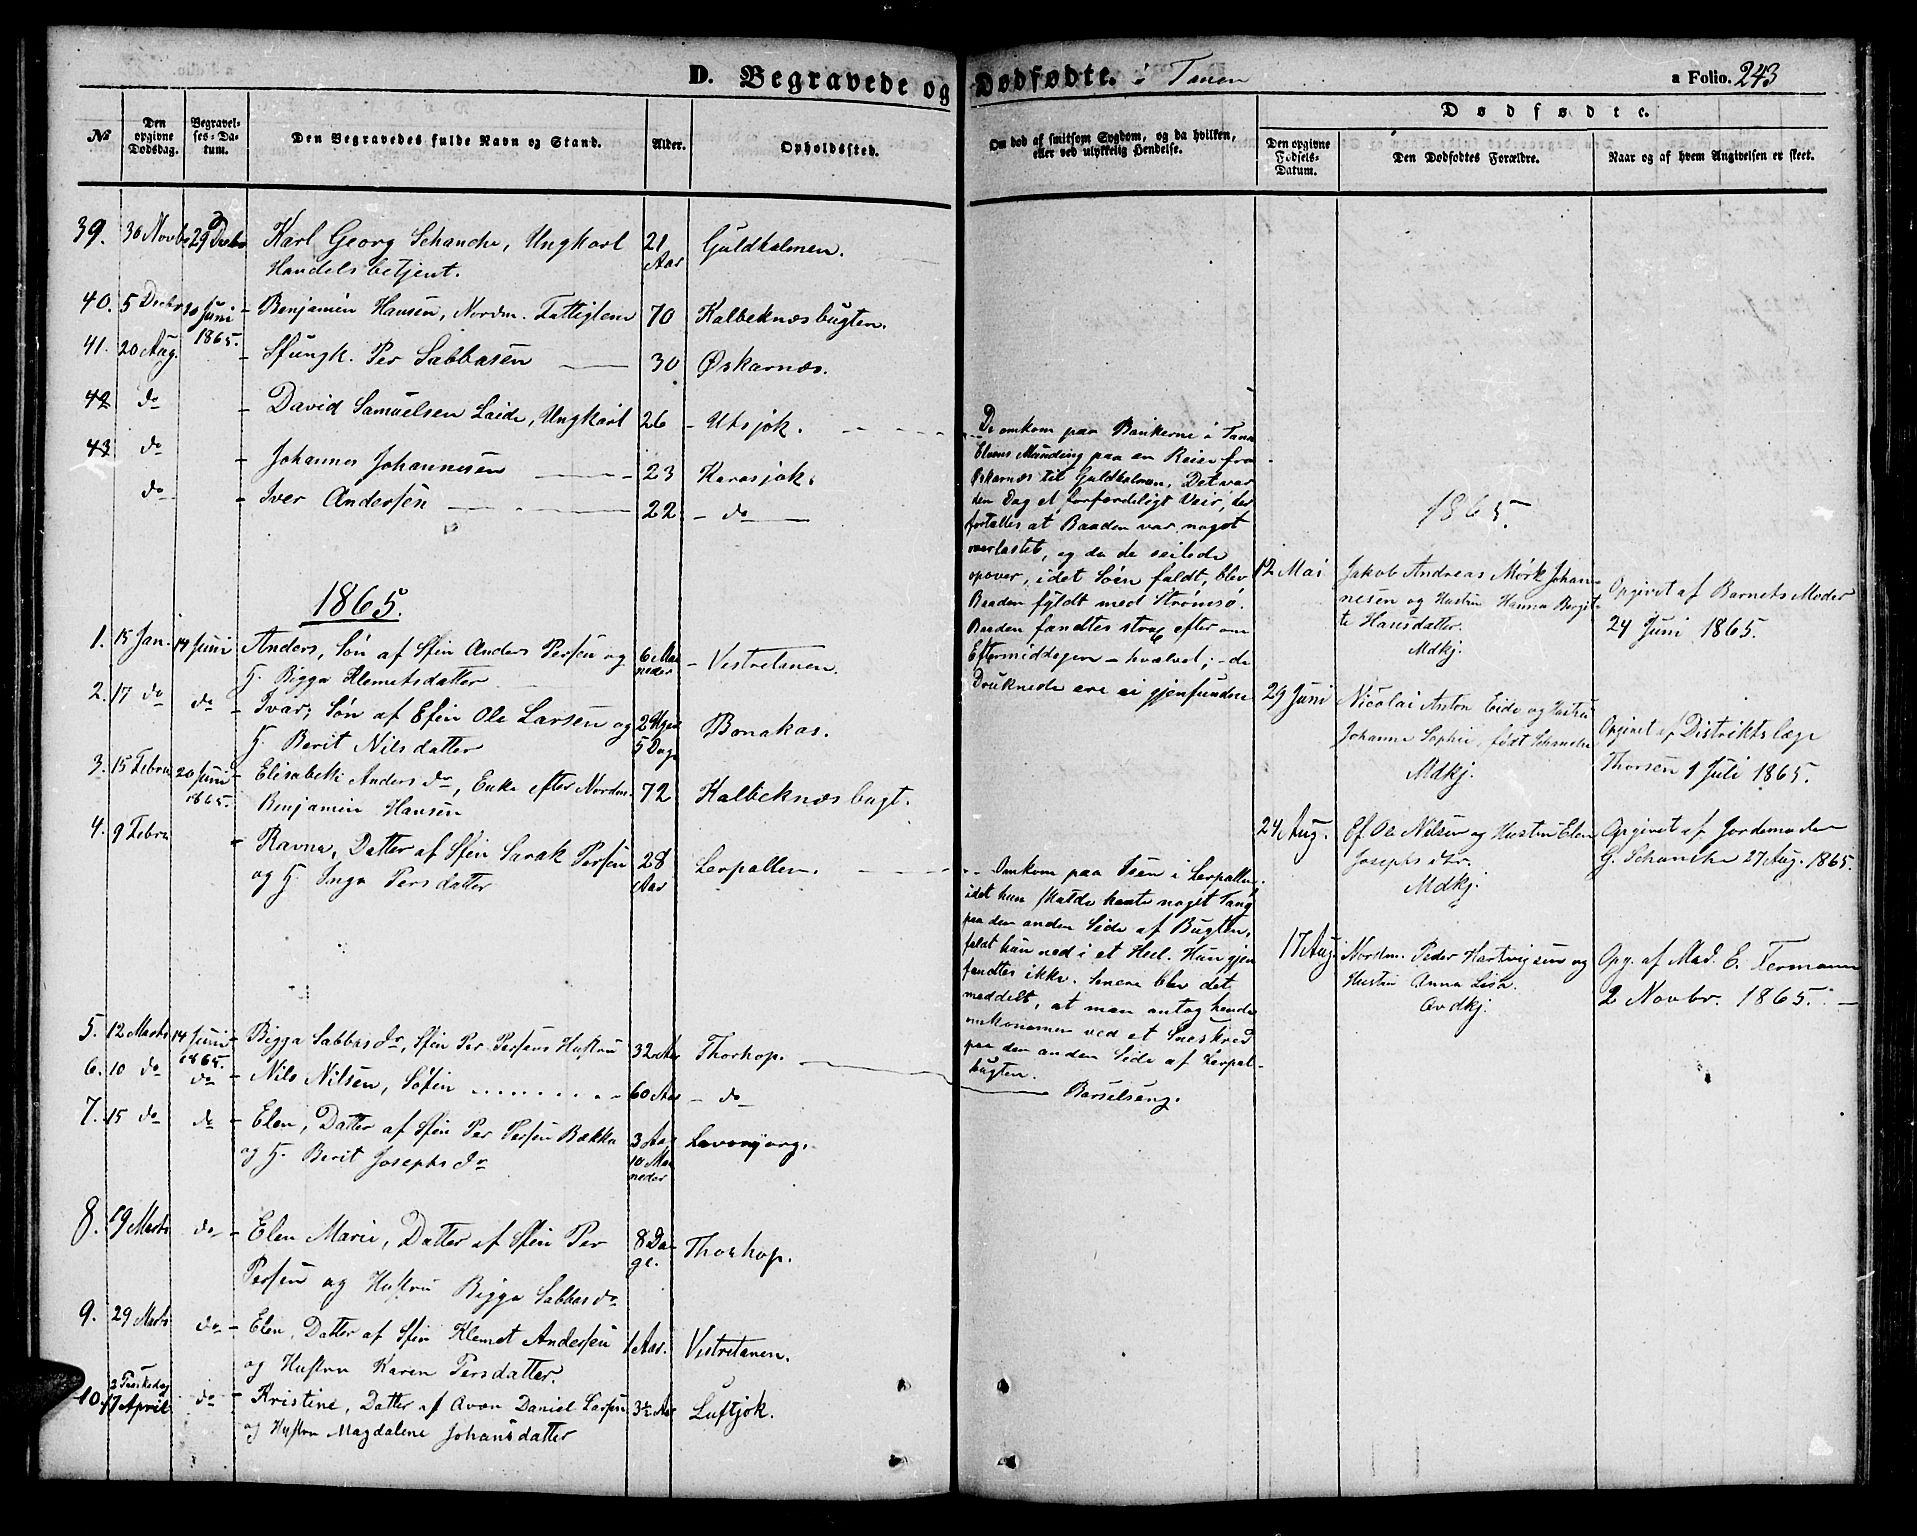 D. Begravede og Dødfødte. i Tanen
a Folio. 243
Dødfødte.
No
Den opgivne Dødsdag.
Begravelses-Datum.
Den Begravedes fulde Navn og Stand.
Alder.
Opholdssted.
Om død af smitsom Sygdom, og da hvilken, eller ved ulykkelig Hendelse.
Den opgivne Fødsels-Datum.
Den Dødfødtes Forældre.
Naar og af hvem Angivelsen er skeet.
39. 30 Novbr 29 Decbr Karl Georg Schanche, Ungkarl 21 Aar Guldholmen.
Handelsbetjent.
40. 5 Decbr 20 Juni 1865. Benjamin Hansen, Nordm. Fattiglem 70 Kalbeknæsbugten.
41. 20 Aug. Sfungk. Per Sabbasen 30 Øskarnæs.
42 do David Samuelsen Laide, Ungkarl 26 Utsjok.
43 do Johannes Johannesen 23 Karasjok.
do Iver Andersen 22 do
1865.
1. 15 Jan. 14 Juni Anders, Søn af Sfin Anders Persen og 6 Maaneder Vestretanen.
H. Bigga Klemetsdatter
2. 17 do do Ivar, Søn af Efin Ole Larsen og 2 Uger 5 Dage Bonakas.
H. Berit Nilsdatter
3. 15 Febru 20 Juni 1865. Elisabeth Anders dr, Enke efter Nordm. 72 Kalbeknæsbugt.
Benjamin Hansen
4. 9 Febru Ravna, Datter af Sfin Sarak Persen 28 Aar Lerpollen.
og H. Inga Persdatter
5. 12 Marts 14 Juni 1865. Bigga Sabbasdr, Sfin Per Persens Hustru 32 Aar Thorhop.
6. 10 do do Nils Nilsen, Søfin 60 Aar do
7. 15 do do Elen, Datter af Sfin Per Persen Bækka 3 Aar 10 Maaneder Lavvonjarg.
og H. Berit Josephsdr
8. 19 Marts do Elen Marie, Datter af Sfin Per 8 Dage. Thorhop.
Persen og Hustru Bigga Sabbasdr
9. 29 Marts do Elen, Datter af Sfin Klemet Andersen 1 Aar. Vestretanen.
og Hustru Karen Persdatter.
10. 2 Paaskedag 17 April do Kristine, Datter af Qvæn Daniel Larsen 3½ Aar Luftjok.
og Hustru Magdalene Johansdatter
De omkom paa Bankerne i Tana
Elvens Munding paa en Reise fra
Øskarnæs til Guldholmen. Det var
den Dag et forfærdeligt Veir, der
fortælles at Baaden var noget
overlastet, og da de seilede
opover, idet Søen faldt, blev
Baaden fyldt med Strømsø.
Baaden fandtes strax efter om
Eftermiddagen hvælvet; de
Druknede ere ei gjenfundne
Omkom paa Isen i Lerpollen.
idet hun skulde hente noget Tang
paa den anden Side af Bugten,
faldt hun ned i et Hul. Hun gjen
fandtes ikke. Senere blev det
meddelt, at man antog hende
omkommen ved et Sneskred
paa den anden Side af Lerpol-
bugten.
Barselseng.
1865.
12 Mai Jakob Andreas Mørk Johan- Opgivet af Barnets Moder
nesen og Hustru Hanna Bergit- 24 Juni 1865.
te Hansdatter.
Mdkj.
29 Juni Nicolai Anton Eide og Hustru Opgivet af Distriktslæge
Johanne Sophie, født Schanche Thorsen 1 Juli 1865.
Mdkj.
24 Aug. Ef Ole Nilsen og Hustru Elen Opgivet af Jordemoder
Josephsdtr. G. Schanche 27 Aug. 1865.
Mdkj.
17 Aug. Nordm. Peder Hartvigsen og Opg. af Mad. E. Fermann
Hustru Anna Lisa. 2 Novbr. 1865.
Qvdkj.